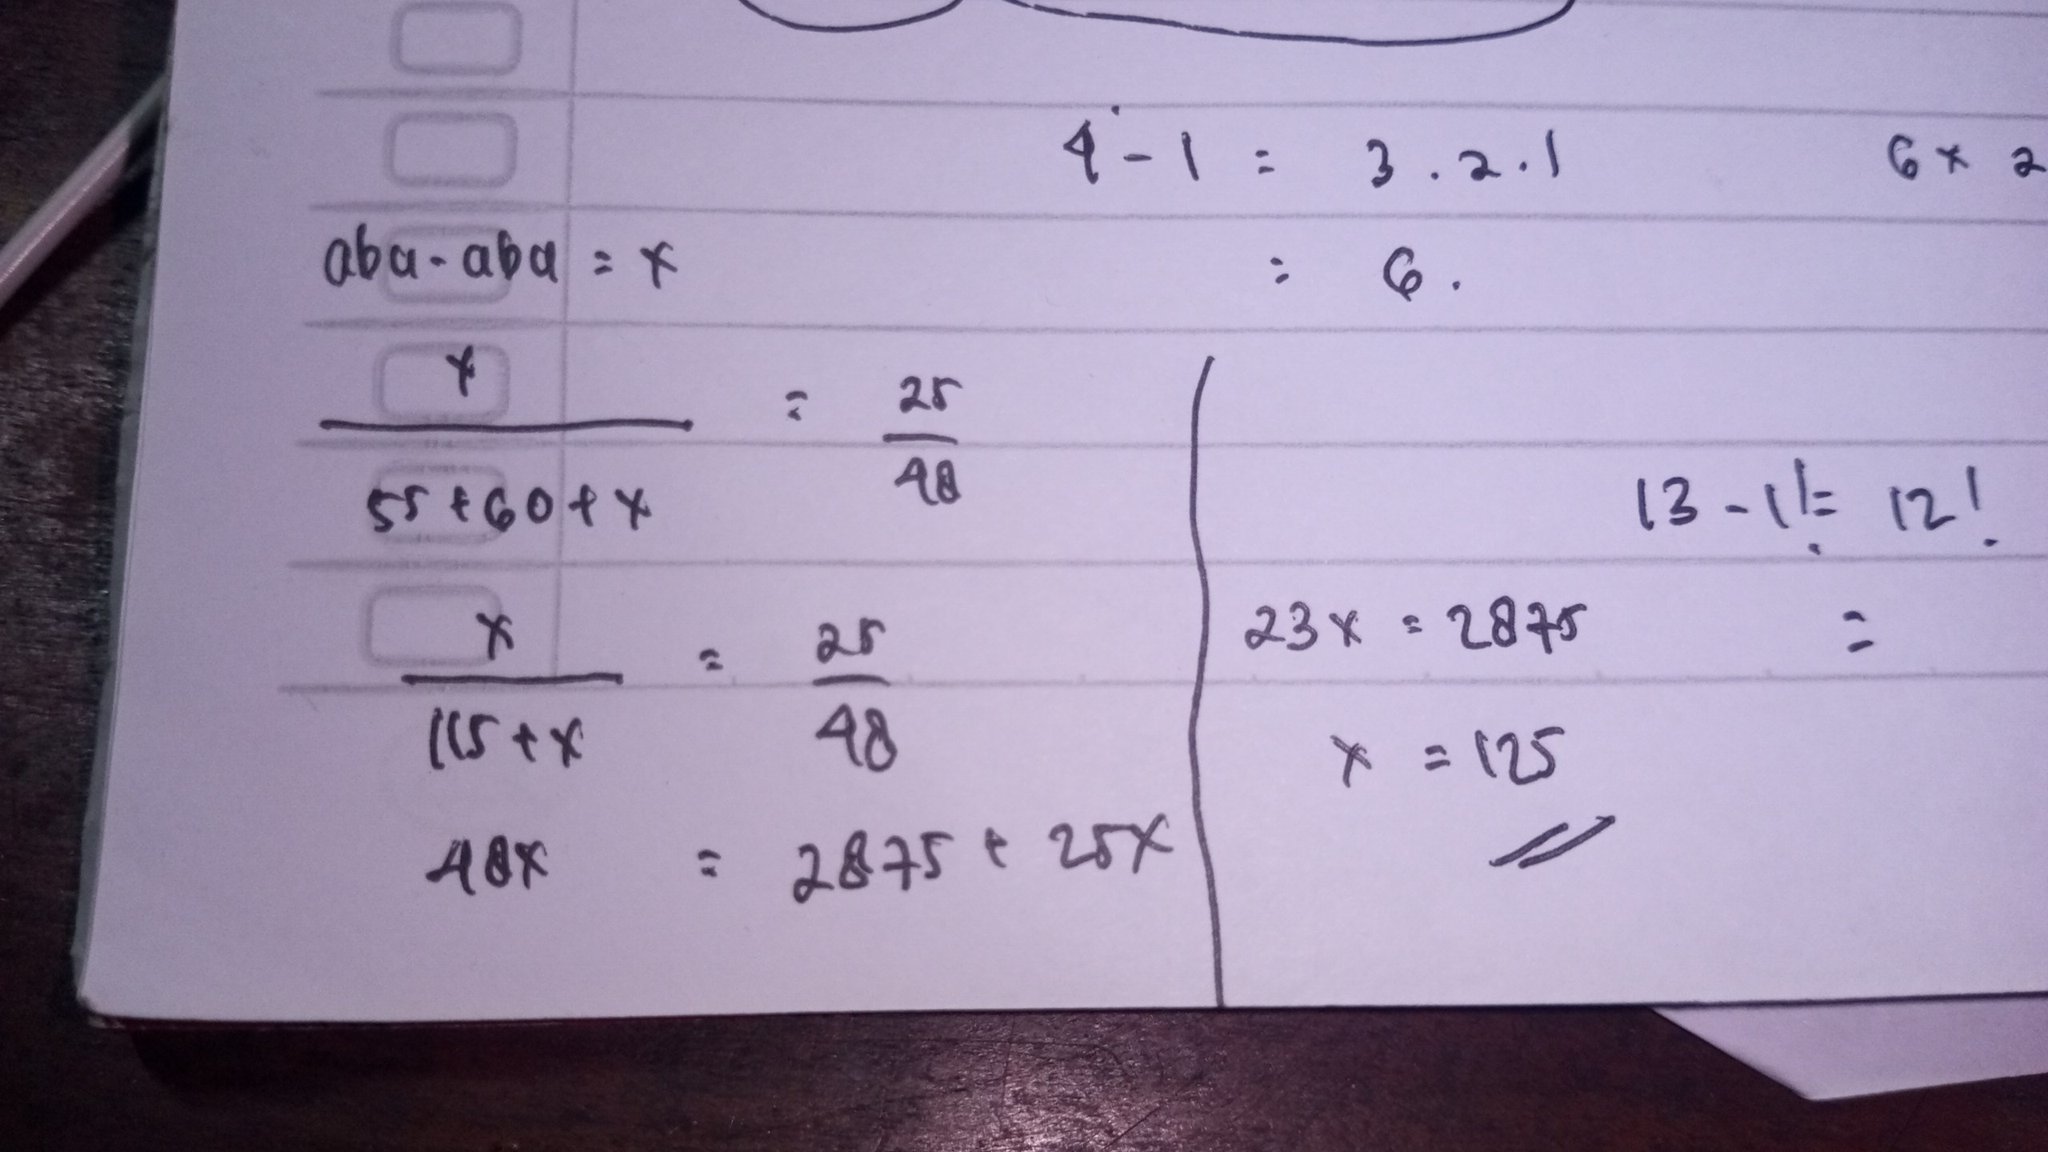 4 - 1 = 3 . 2 . 1
6 x 2
aba - aba = x
= 6 .
x / 55 + 60 + x = 25 / 48
13 - 1! = 12!
x / 115 + x = 25 / 48
23x = 2875
=
x = 125
48x = 2875 + 25x